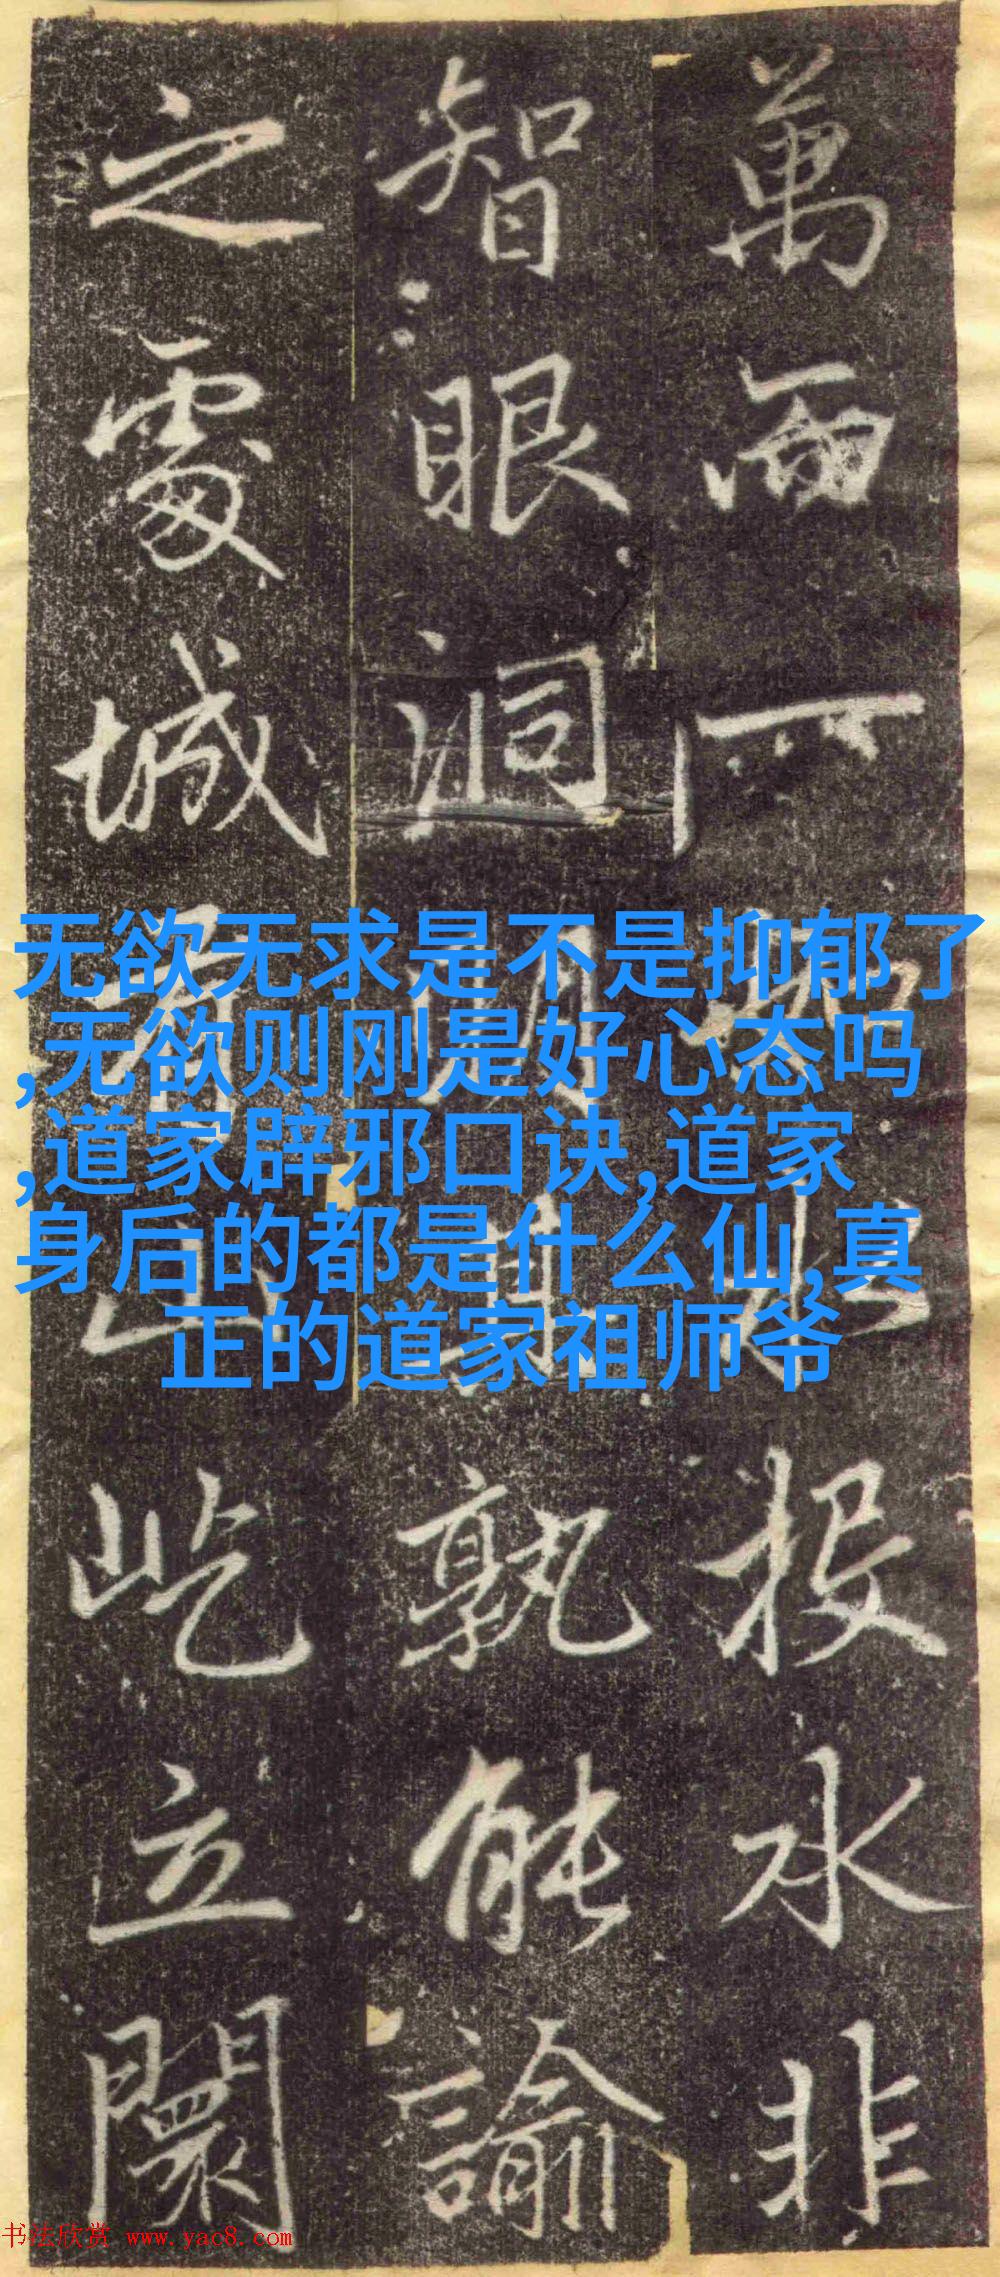 萬而一
投水非
智眼洞
孰能諭
之處城
屹立闤
无欲无求是不是抑郁了
,无欲则刚是好心态吗
,道家辟邪口诀,道家
身后的都是什么仙,真
正的道家祖师爷
书法欣赏 www.yac8.com